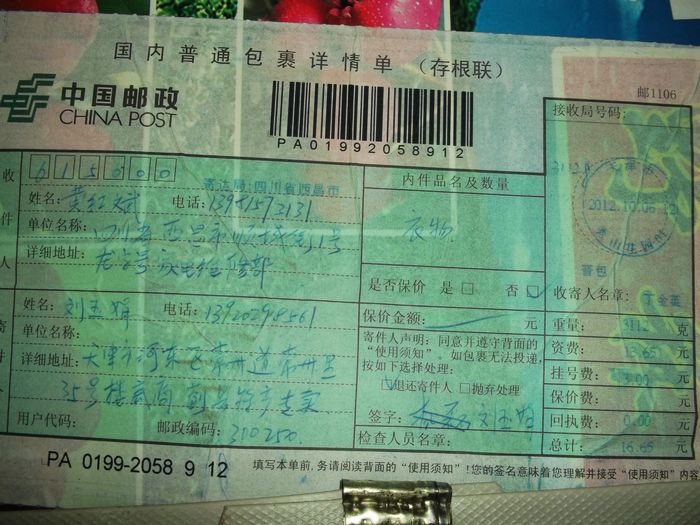 国内普通包裹详情单 (存根联)
中国邮政
CHINA POST
PA01992058912
邮1106
接收局号码:
收件人
615000
寄达局:四川省西昌市
姓名: 电话:
单位名称: 四川省西昌市
详细地址:
内件品名及数量
衣物
3112g
2012.10.06
普包
是否保价 是□ 否□
收寄人名章: 丁金英
姓名: 电话:
单位名称:
详细地址: 天津市河东区常州道常州里
35号楼底商
用户代码: 邮政编码: 300250
保价金额: 元
寄件人声明:同意并遵守背面的
“使用须知”。如包裹无法投递,
按如下选择处理:
□退还寄件人 □抛弃处理
签字:
检查人员名章:
重量: 3112 克
资费: 13.65 元
挂号费: 3.00 元
保价费: 元
回执费: 0.00 元
总计: 16.65 元
PA 0199-2058 9 12
填写本单前,务请阅读背面的“使用须知”!您的签名意味着您理解并接受“使用须知”内容